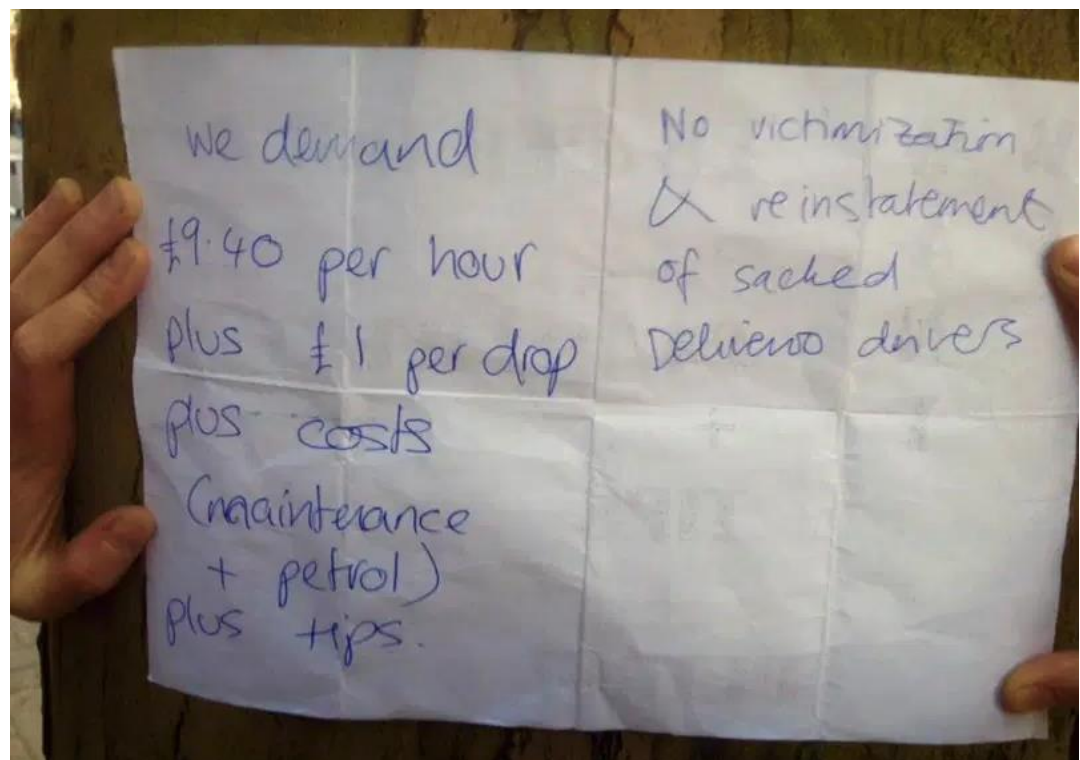 we demand
£9.40 per hour
plus £1 per drop
plus costs
(maintenance
+ petrol)
plus tips.
No victimization
& reinstatement
of sacked
Deliveroo drivers